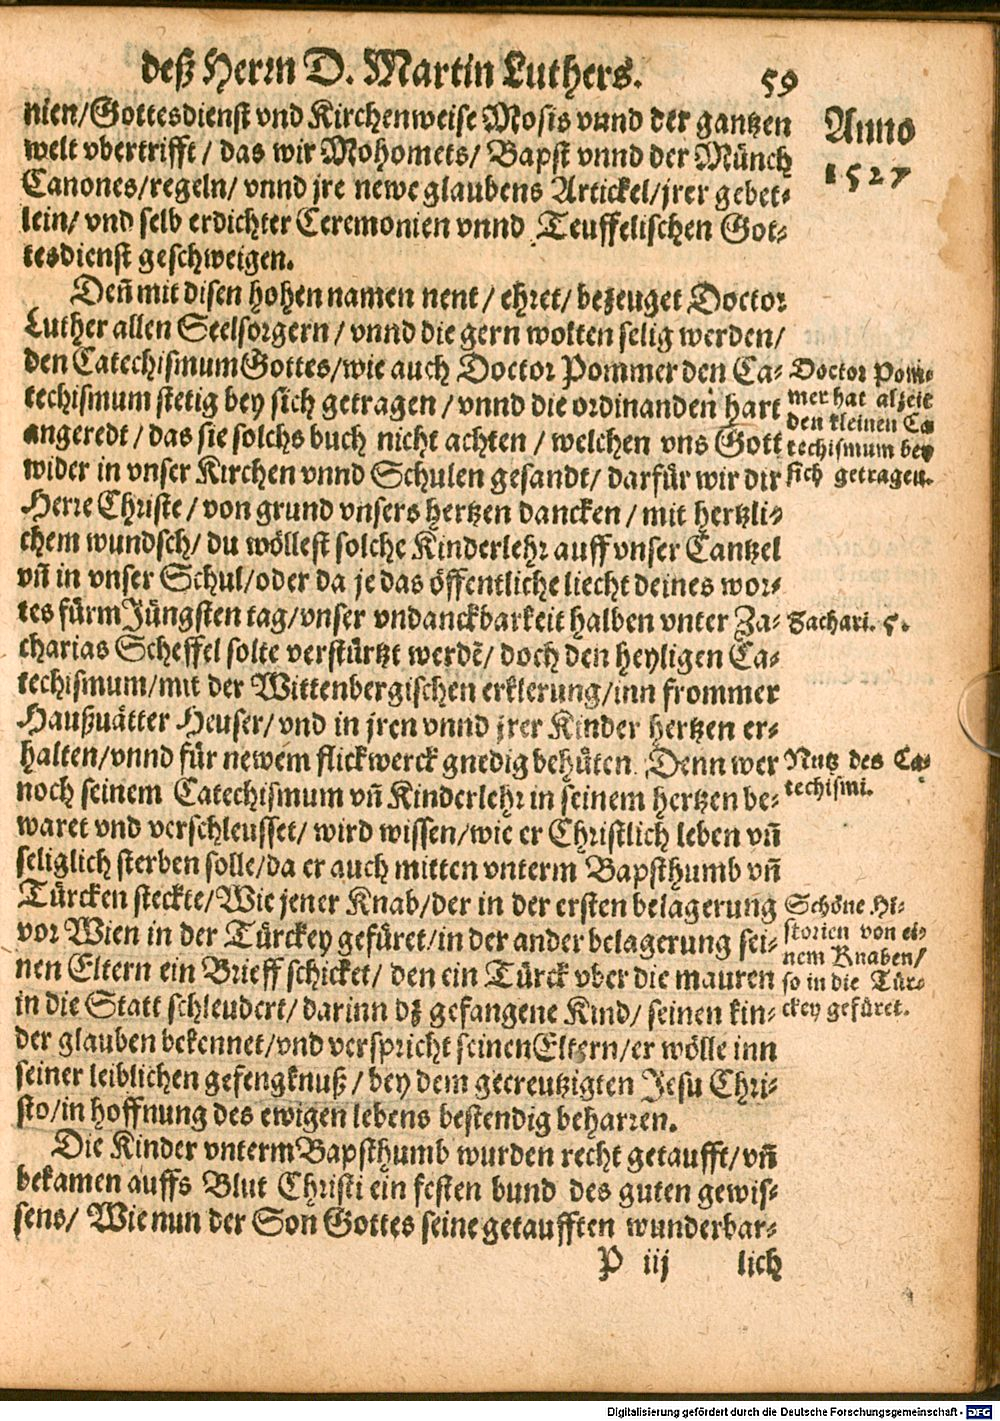 deß Herrn D. Martin Luthers. 59
nien/Gottesdienst vnd Kirchenweise Mosis vnnd der gantzen
welt vbertrifft / das wir Mohomets/ Bapst vnnd der Münch
Canones/regeln/ vnnd jre newe glaubens Artickel/jrer gebet-
lein/ vnd selb erdichter Ceremonien vnnd Teuffelischen Got-
tesdienst geschweigen.
Anno
1527
Deñ mit disen hohen namen nent / ehret/ bezeuget Doctor
Luther allen Seelsorgern / vnnd die gern wolten selig werden/
den Catechismum Gottes/wie auch Doctor Pommer den Ca-
techismum stetig bey sich getragen / vnnd die ordinanden hart
angeredt / das sie solchs buch nicht achten / welchen vns Gott
wider in vnser Kirchen vnnd Schulen gesandt/ darfür wir dir
Herre Christe / von grund vnsers hertzen dancken / mit hertzli-
chem wundsch/ du wöllest solche Kinderlehr auff vnser Cantzel
vñ in vnser Schul/oder da je das öffentliche liecht deines wor-
tes fürm Jüngsten tag/vnser vndanckbarkeit halben vnter Za-
charias Scheffel solte verstürtzt werdẽ/ doch den heyligen Ca-
techismum/mit der Wittenbergischen erklerung/inn frommer
Haußuätter Heuser/ vnd in jren vnnd jrer Kinder hertzen er-
halten/vnnd für newem flickwerck gnedig behüten. Denn wer
noch seinem Catechismum vñ Kinderlehr in seinem hertzen be-
waret vnd verschleusset/ wird wissen/wie er Christlich leben vñ
seliglich sterben solle/da er auch mitten vnterm Bapsthumb vñ
Türcken steckte/Wie jener Knab/der in der ersten belagerung
vor Wien in der Türckey gefüret/in der ander belagerung sei-
nen Eltern ein Brieff schicket/ den ein Türck vber die mauren
in die Statt schleudert/ darinn dz gefangene Kind/ seinen kin-
der glauben bekennet/vnd verspricht seinen Eltern/er wölle inn
seiner leiblichen gefengknuß / bey dem gecreutzigten Jesu Chri-
sto/in hoffnung des ewigen lebens bestendig beharren.
Doctor Pom-
mer hat alzeit
den kleinen Ca
techismum bey
sich getragen.
Zachari. 5.
Nutz des Ca-
techismi.
Schöne Hi-
storien von ei-
nem Knaben/
so in die Tür-
ckey gefüret.
Die Kinder vnterm Bapsthumb wurden recht getaufft/vñ
bekamen auffs Blut Christi ein festen bund des guten gewis-
sens/ Wie nun der Son Gottes seine getaufften wunderbar-
P iij lich
Digitalisierung gefördert durch die Deutsche Forschungsgemeinschaft - DFG